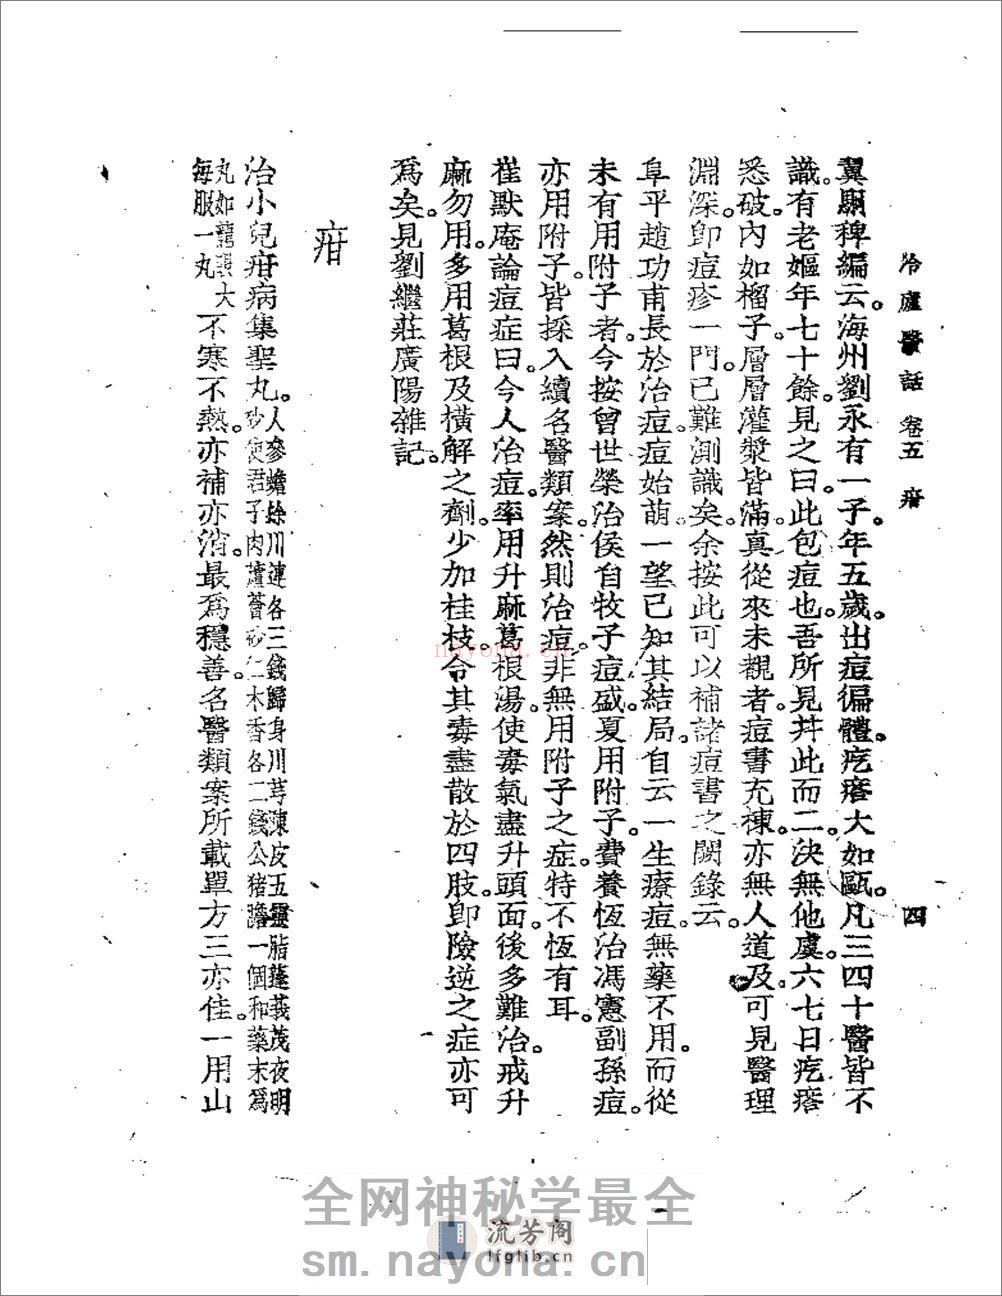 冷廬醫話 卷五 疳 四
翼駉稗編云。海州劉永有一子。年五歲。出痘徧體。疙瘩大如甌。凡三四十醫皆不
識。有老嫗年七十餘。見之曰。此包痘也。吾所見幷此而二。決無他虞。六七日疙瘩
悉破。內如榴子。層層灌漿皆滿。眞從來未覩者。痘書充棟。亦無人道及。可見醫理
淵深。卽痘疹一門。已難測識矣。余按此可以補諸痘書之闕。錄云。
阜平趙功甫長於治痘。痘始萌。一望已知其結局。自云一生療痘。無藥不用。而從
未有用附子者。今按曾世榮治侯自牧子痘。盛夏用附子。費養恆治馮憲副孫痘。
亦用附子。皆採入續名醫類案。然則治痘。非無用附子之症。特不恆有耳。
崔默庵論痘症曰。今人治痘。率用升麻葛根湯。使毒氣盡升頭面。後多難治。戒升
麻勿用。多用葛根及橫解之劑。少加桂枝。令其毒盡散於四肢。卽險逆之症亦可
爲矣。見劉繼莊廣陽雜記。
疳
治小兒疳病集聖丸。人參蟾蜍川連各三錢歸身川芎陳皮五靈脂蓬莪茂夜明
砂使君子肉蘆薈砂仁木香各二錢公猪膽一個和藥末爲
丸如龍眼大
每服一丸 不寒不熱。亦補亦消。最爲穩善。名醫類案所載單方三亦佳。一用山
nayona.cn
全网神秘学最全
流芳阁
lfglib.cn
sm.nayona.cn